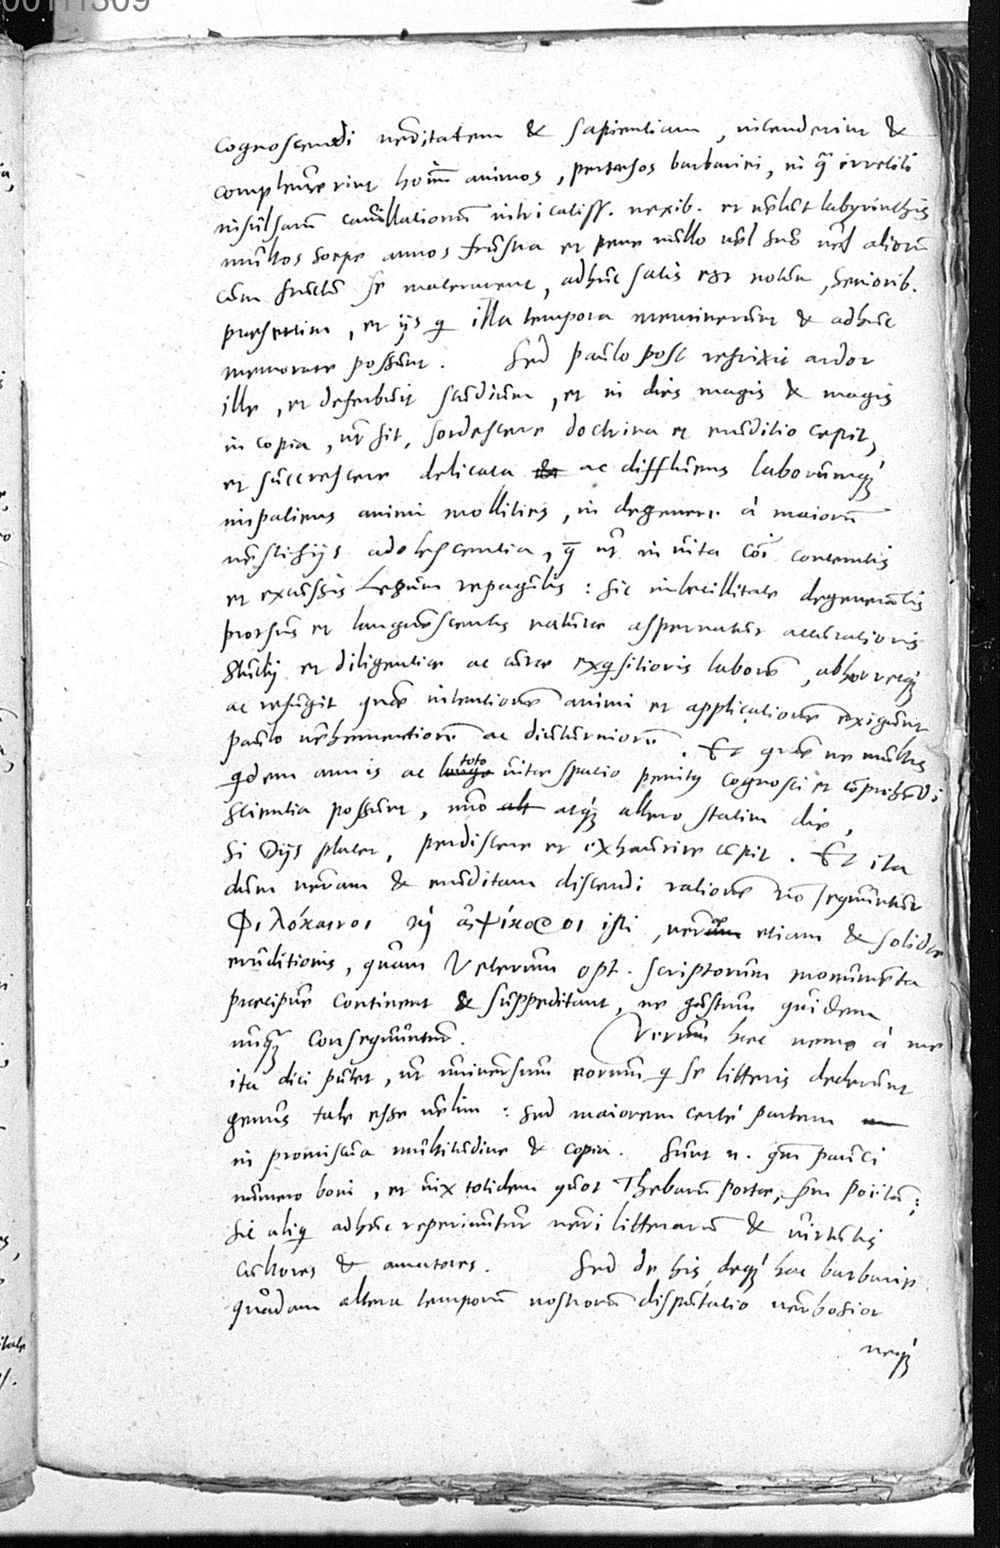 00111309
cognoscendi ueritatem & sapientiam, incenderint &
compleuerint hoīm animos, pertęsos barbariei, in q̄ irretiti
insulsarū cauillationū intricatiss. nexib. et uelut labyrinthis
multos sæpe annos frustra et pene nullo uel suo uel aliorū
cum fructu se macerarent, adhuc satis est notum, seniorib.
præsertim, et ijs q illa tempora meminerunt & adhuc
memorare possunt. Sed paulo post refrixit ardor
ille, et deferbuit studium, et in dies magis & magis
in copia, ut fit, sordescere doctrina et eruditio cepit,
et succrescere delicata ac diffluens laborumq́;
impatiens animi mollities, in degeneri à maiorū
uestigijs adolescentia, q̄ ut in uita cōi contemtis
et excussis Legum repagulis: sic imbecillitate degenerātis
prorsus et languescentis naturæ aspernatur accuratioris
studij et diligentiæ ac curæ exqsitioris laborē, abhorretq́;
ac refugit quæ intentionē animi et applicationē exigunt
paulo uehementiorē ac diuturniorē. Et quæ ne multis
qdem annis ac toto uitæ spacio penitus cognosci et cōprehēdi
scientia possunt, uno atq́; altero statim die,
si Dijs placet, perdiscere et exhaurire cupit. Et ita
dum ueram & eruditam discendi rationē nō sequuntur
Φιλόκαινοι ἁψίκοροι isti, ueræ etiam & solidæ
eruditionis, quam Veterum opt. scriptorum monumenta
præcipue continent & suppeditant, ne gustum quidem
unq̄ consequuntur. Verum hæc nemo à me
ita dici putet, ut uniuersum eorum q se litteris dederunt
genus tale esse uelim: sed maiorem certè partem
in promiscua multitudine & copia. Sunt n. qm̄ pauci
numero boni, et uix totidem quot Thebarū portæ, sm̄ Poētam:
sic aliq adhuc reperiuntur ueri litterarū & uirtutis
cultores & amatores. Sed de his, deq́; hac barbarie
quadam altera temporū nostrorū disputatio uerbosior
neq́;